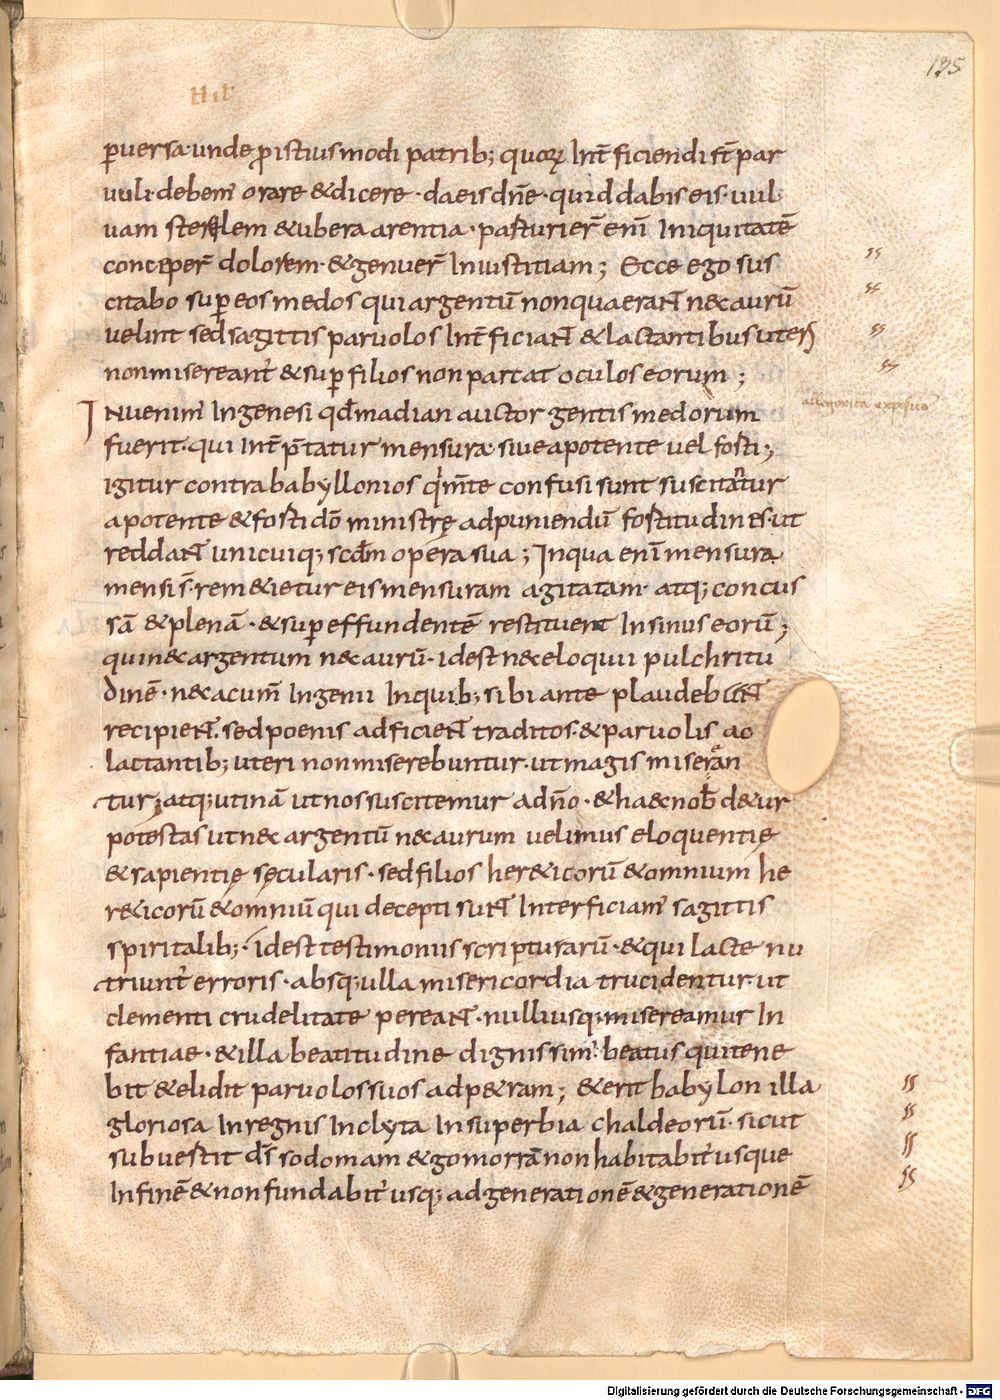 135
puersa· unde p istiusmodi patrib; quoꝝ Int̄ ficiendi st̄ par
uuli· debem̄ orare & dicere · da eis dn̄e · quid dabis eis · uul
uam sterelem & ubera arentia · parturier̄ enī Iniquitatē
conceper̄ dolorem · & genuer̄ Iniustitiam; Ecce ego sus
citabo sup eos medos qui argentū non quaerant nec aurū
uelint sed sagittis paruolos Int̄ficiant & lactantibus uteri
non misereant̄ & sup filios non parcat oculos eorum;
Inuenim̄ In genesi qd̄ madian auctor gentis medorum
fuerit· qui Int̄p̄tatur mensura· siue a potente uel forti;
igitur contra babyllonios q m̄te confusi sunt suscitatur
a potente & forti dō ministrę ad puniendū fortitudines· ut
reddant unicuiq; scdm̄ opera sua; In qua enī mensura
mensi s̄· remetietur eis mensuram agitatam· atq; concus
sā & plenā · & sup effundentē restituent In sinus eorū;
qui nec argentum nec aurū· id est nec eloquii pulchritu
dinē · nec acum̄ Ingenii In quib; sibi ante plaudebant
recipient. sed poenis adficient traditos· & paruolis ac
lactantib; uteri non miserebuntur· ut magis miseran
tur; atq; utinā ut nos suscitemur a dn̄o · & haec nob̄ detur
potestas ut nec argentū nec aurum uelimus eloquentię
& sapientię sęcularis · sed filios hereticorū & omnium he
reticorū & omniū qui decepti sunt Interficiam̄ sagittis
spiritalib; · id est testimoniis scripturarū · & qui lacte nu
triunt̄ erroris · absq; ulla misericordia trucidentur· ut
clementi crudelitate pereant · nulliusq; misereamur In
fantiae · & illa beatitudine dignissim: beatus qui tene
bit & elidit paruolos suos ad petram; & erit babylon illa
gloriosa In regnis Inclyta In superbia chaldeorū· sicut
subuertit ds̄ sodomam & gomorrā non habitabit̄ usque
In finē & non fundabit̄ usq; ad generationē & generationē
Digitalisierung gefördert durch die Deutsche Forschungsgemeinschaft - DFG